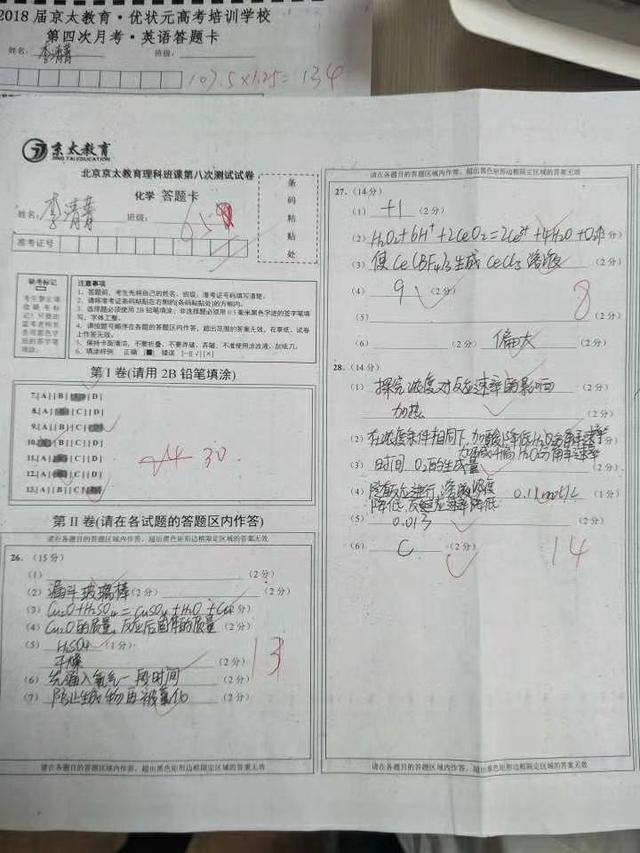 2018 届京太教育·优状元高考培训学校
第四次月考·英语答题卡
姓名：李清菁 班级：
107.5×1.25=134
京太教育
JING TAI EDUCATION
北京京太教育理科班课第八次测试试卷
化学 答题卡
姓名：李清菁 班级：
65
准考证号
条码粘贴处
缺考标记
注意事项
1. 答题前，考生先将自己的姓名、班级、准考证号码填写清楚。
2. 请将准考证条码粘贴在右侧的[条码粘贴处]的方框内。
3. 选择题必须使用 2B 铅笔填涂；非选择题必须用 0.5 毫米黑色字迹的签字笔填写，字体工整。
4. 请按题号顺序在各题的答题区内作答，超出范围的答案无效，在草纸、试卷上作答无效。
5. 保持卡面清洁，不要折叠、不要弄破、弄皱，不准使用涂改液、刮纸刀。
6. 填涂样例 正确 [■] 错误 [--][√][×]
第 I 卷(请用 2B 铅笔填涂)
7.[A][B] [D]
8.[A] [C][D]
9.[A] [D]
10. [B][C][D]
11.[A] [C][D]
12.[A] [C][D]
13.[A][B] [D]
30
第 II 卷(请在各试题的答题区内作答)
请在各题目的答题区域内作答，超出黑色矩形边框限定区域的答案无效
26.（15分）
(1) （2分）
(2) 漏斗 玻璃棒（2分） （2分）
(3) Cu₂O+H₂SO₄=CuSO₄+H₂O+Cu （2分）
(4) Cu₂O的质量，反应后固体的质量（2分）
(5) H₂SO₄（1分）
干燥 （2分）
(6) 继续通入氢气一段时间 （2分）
(7) 防止生成物再被氧化 （2分）
13
请在各题目的答题区域内作答，超出黑色矩形边框限定区域的答案无效
请在各题目的答题区域内作答，超出黑色矩形边框限定区域的答案无效
27.（14分）
(1) +1 （2分）
(2) H₂O₂+6H⁺+2CeO₂=2Ce³⁺+4H₂O+O₂↑
(3) 使Ce(BF₄)₃生成CeCl₃溶液
(4) 9 （2分）
(5) （2分）
8
(6) （2分） 偏大 （2分）
28.（14分）
(1) 探究浓度对反应速率的影响
加热
(2) 在浓度条件相同下,
(3) 时间、O₂的生成量
(4) 随反应进行，溶液浓度降低，反应速率降低 0.11mol/L（1分）
(5) 0.013 （2分）
(6) C （2分）
14
请在各题目的答题区域内作答，超出黑色矩形边框限定区域的答案无效